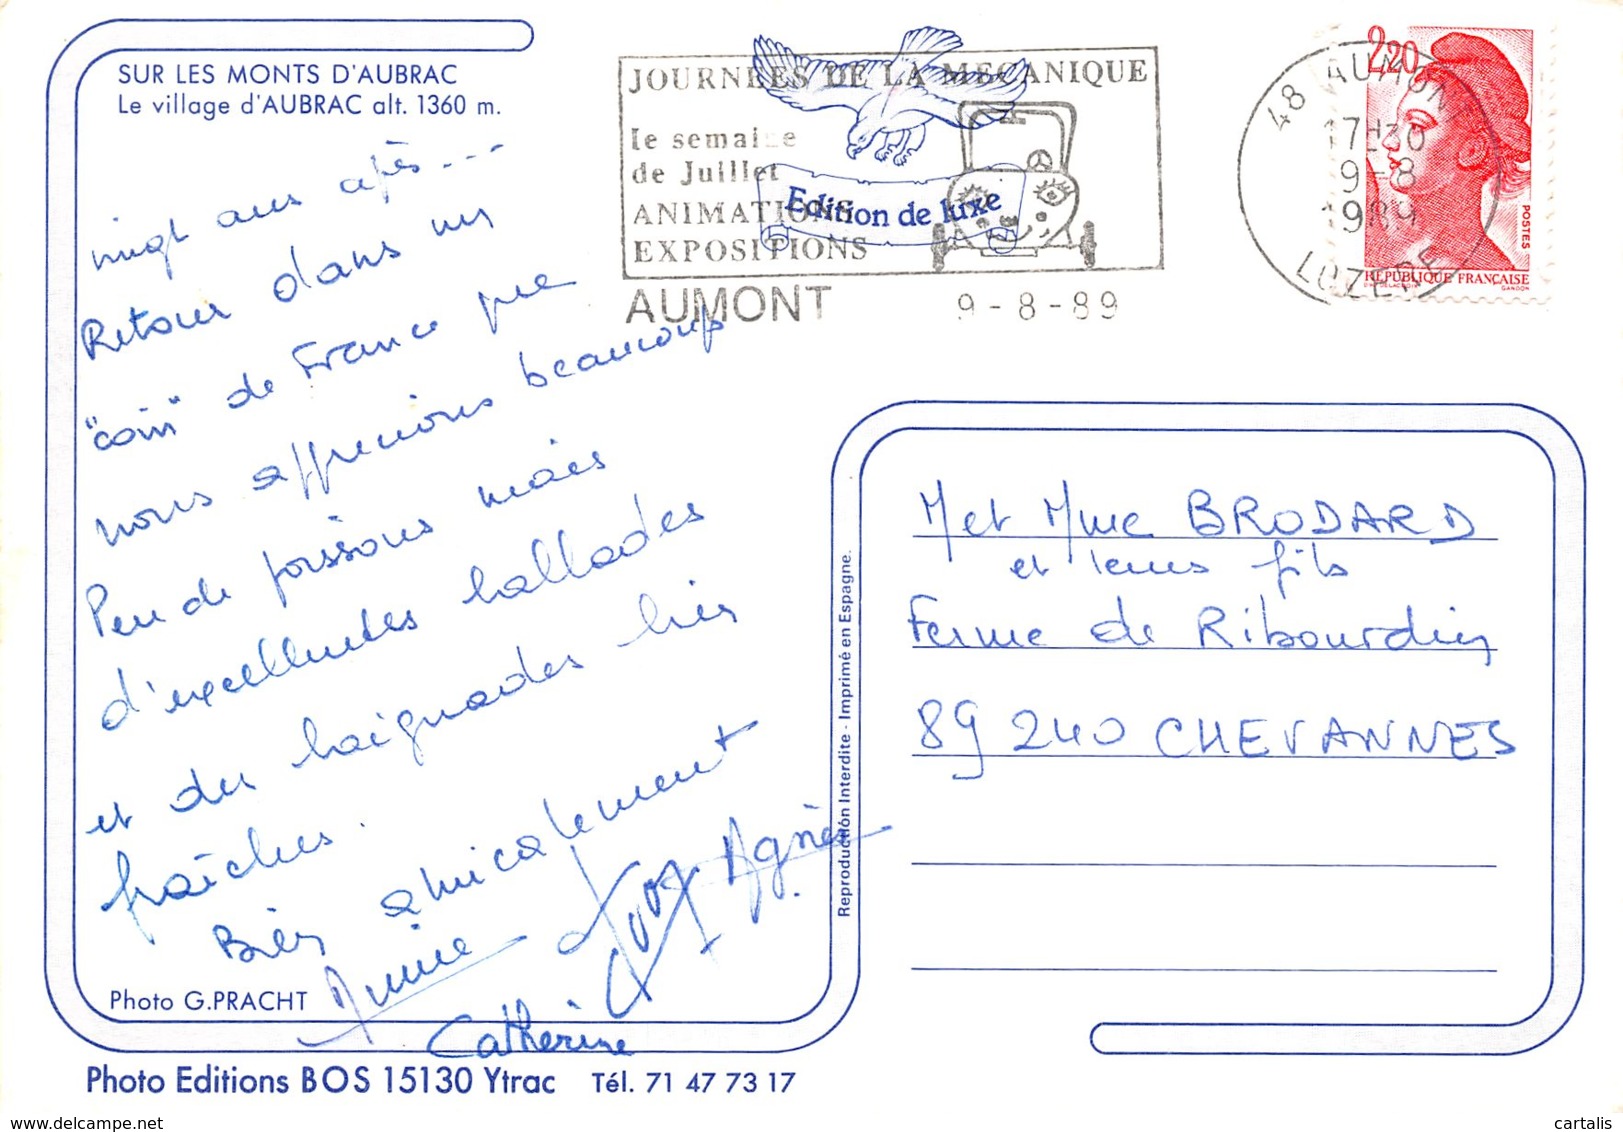 SUR LES MONTS D'AUBRAC
Le village d'AUBRAC alt. 1360 m.
vingt ans après ---
Retour dans un
"coin" de France que
nous apprécions beaucoup
Peu de poissons mais
d'excellentes ballades
et des baignades bien
fraîches.
Bien amicalement
Annie
Agnès
Catherine
Photo G.PRACHT
Photo Editions BOS 15130 Ytrac Tél. 71 47 73 17
JOURNÉES DE LA MECANIQUE
1e semaine
de Juillet
ANIMATIONS
EXPOSITIONS
AUMONT 9-8-89
Edition de luxe
48 AUMONT
17H30
9-8
1989
LOZERE
2,20
POSTES
REPUBLIQUE FRANÇAISE
GANDON
Reproduction Interdite - Imprimé en Espagne.
M et Mme BRODARD
et leurs fils
Ferme de Ribourdin
89 240 CHEVANNES
www.delcampe.net
cartalis